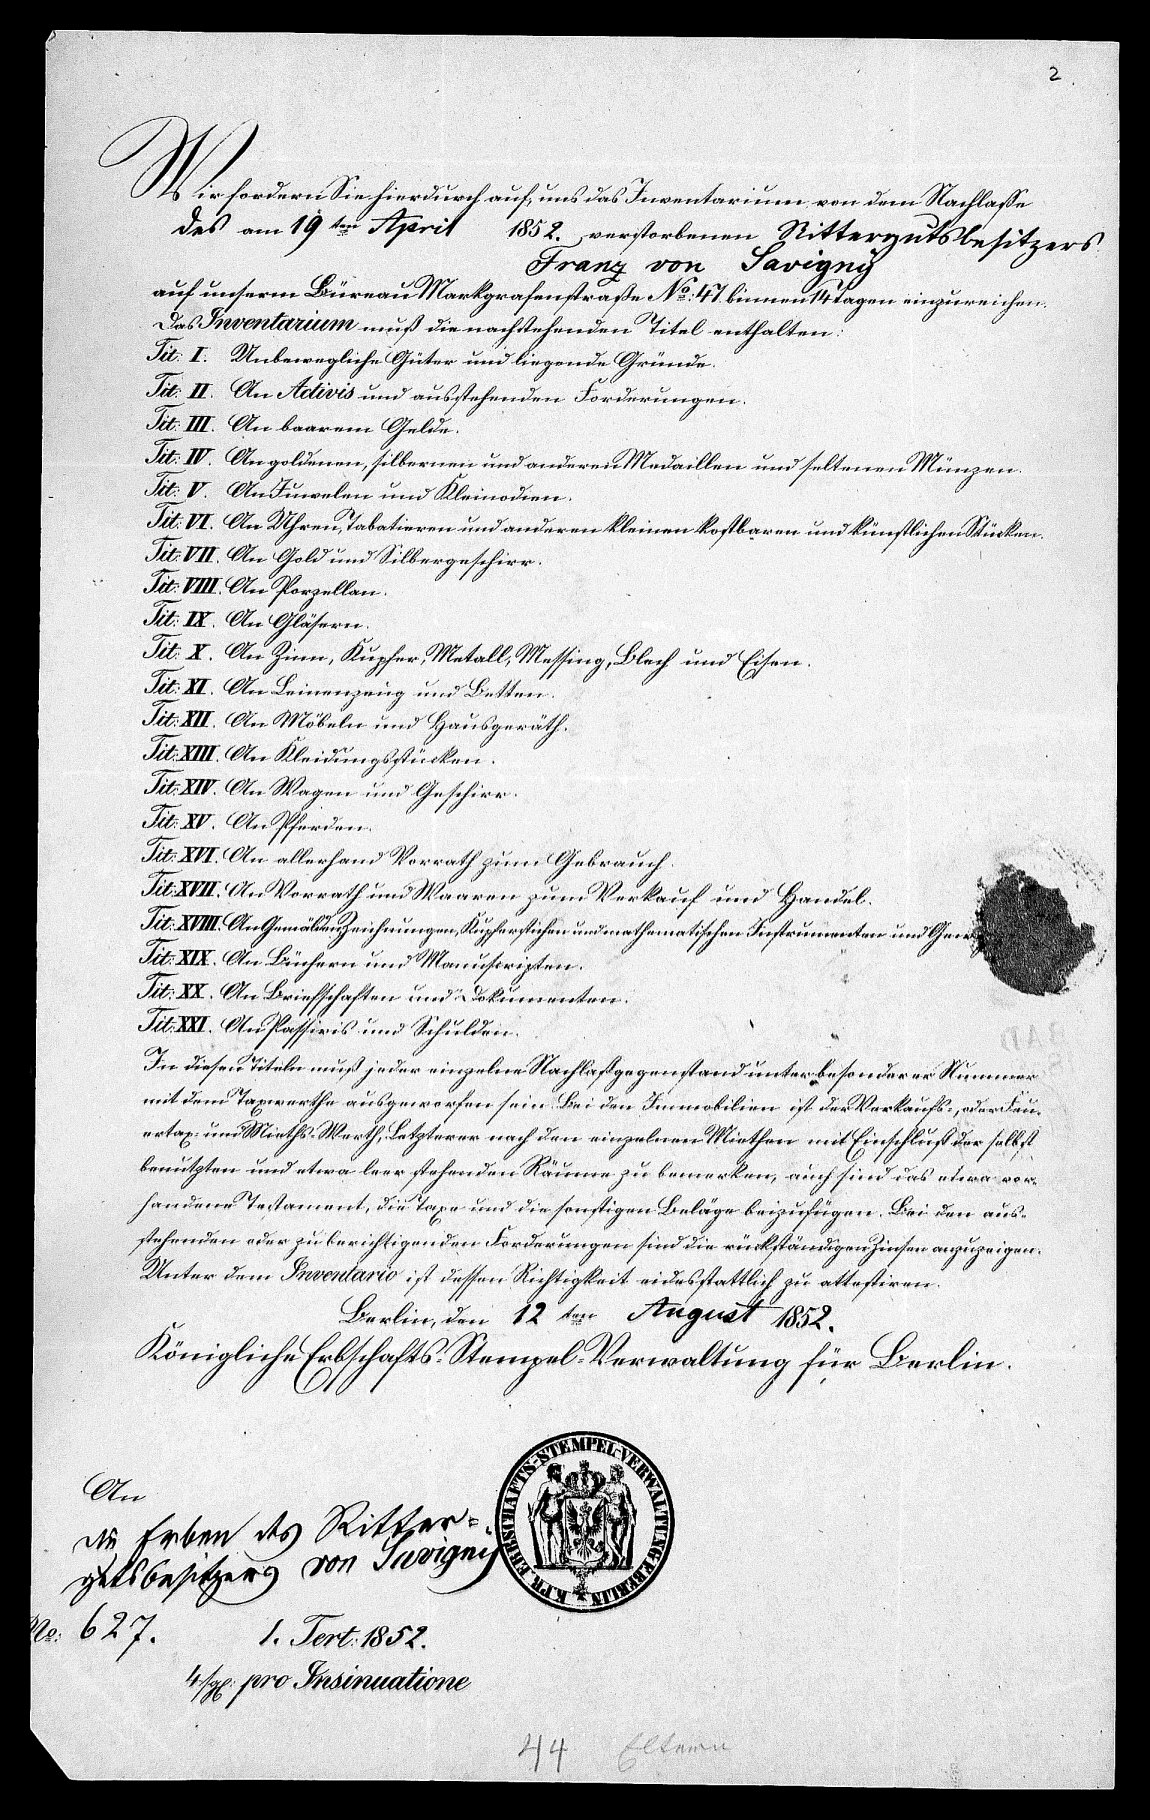 2
Wir fordern Sie hierdurch auf, uns das Inventarium von dem Nachlasse
des am 19ten April 1852. verstorbenen Rittergutsbesitzers
Franz von Savigny
auf unserm Büreau Markgrafenstraße No: 47. binnen 14 Tagen einzureichen.
Das Inventarium muß die nachstehenden Titel enthalten:
Tit: I. Unbewegliche Güter und liegende Gründe.
Tit: II. An Activis und ausstehenden Forderungen.
Tit: III. An baarem Gelde.
Tit: IV. An goldenen, silbernen und anderen Medaillen und seltenen Münzen.
Tit: V. An Juwelen und Kleinodien.
Tit: VI. An Uhren, Tabatieren und anderen kleinen kostbaren und künstlichen Stücken.
Tit: VII. An Gold und Silbergeschirr.
Tit: VIII. An Porzellan.
Tit: IX. An Gläsern.
Tit: X. An Zinn, Kupfer, Metall, Messing, Blech und Eisen.
Tit: XI. An Leinenzeug und Betten.
Tit: XII. An Möbeln und Hausgeräth.
Tit: XIII. An Kleidungsstücken.
Tit: XIV. An Wagen und Geschirr.
Tit: XV. An Pferden.
Tit: XVI. An allerhand Vorrath zum Gebrauch.
Tit: XVII. An Vorrath und Waaren zum Verkauf und Handel.
Tit: XVIII. An Gemälden, Zeichnungen, Kupferstichen und mathematischen Instrumenten und
Tit: XIX. An Büchern und Manuscripten.
Tit: XX. An Briefschaften und Dokumenten.
Tit: XXI. An Passivis und Schulden.
In diesen Titeln muß jeder einzelne Nachlaßgegenstand unter besonderer Nummer
mit dem Taxwerthe ausgeworfen sein. Bei den Immobilien ist der Verkaufs-, oder Feu-
ertax- und Mieths-Werth, Letzterer nach den einzelnen Miethen mit Einschluß der selbst
benutzten und etwa leer stehenden Räume zu bemerken, auch sind das etwa vor-
handene Testament, die Taxe und die sonstigen Beläge beizufügen. Bei den aus-
stehenden oder zu berichtigenden Forderungen sind die rückständigen Zinsen anzuzeigen.
Unter dem Inventario ist dessen Richtigkeit eidesstattlich zu attestiren.
Berlin, den 12ten August 1852.
Königliche Erbschafts-Stempel-Verwaltung für Berlin.
K. PR. ERBSCHAFTS-STEMPEL-VERWALTUNG F. BERLIN
An
die Erben des Ritter-
gutsbesitzers von Savigny
No: 627. 1. Tert: 1852.
4 sgl: pro Insinuatione
44 Eltern